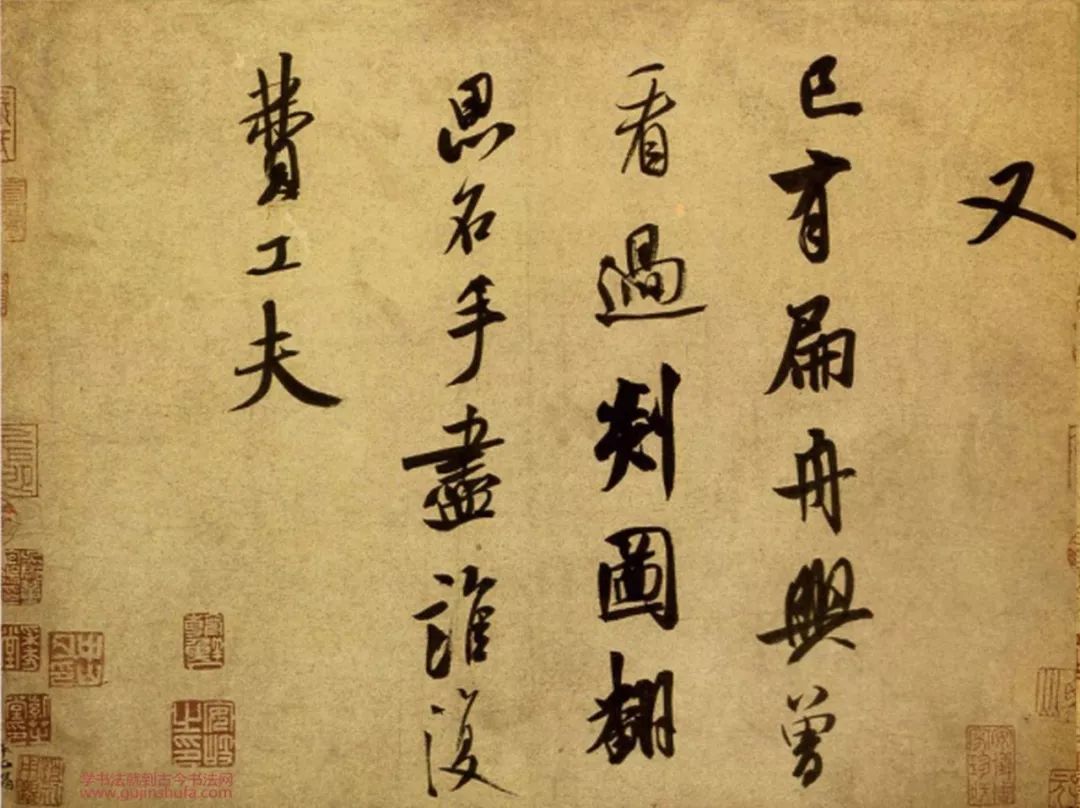 又
已有扁舟興曽
看過剡圖翻
思名手盡誰復
費工夫
学书法就到古今书法网
www.gujinshufa.com